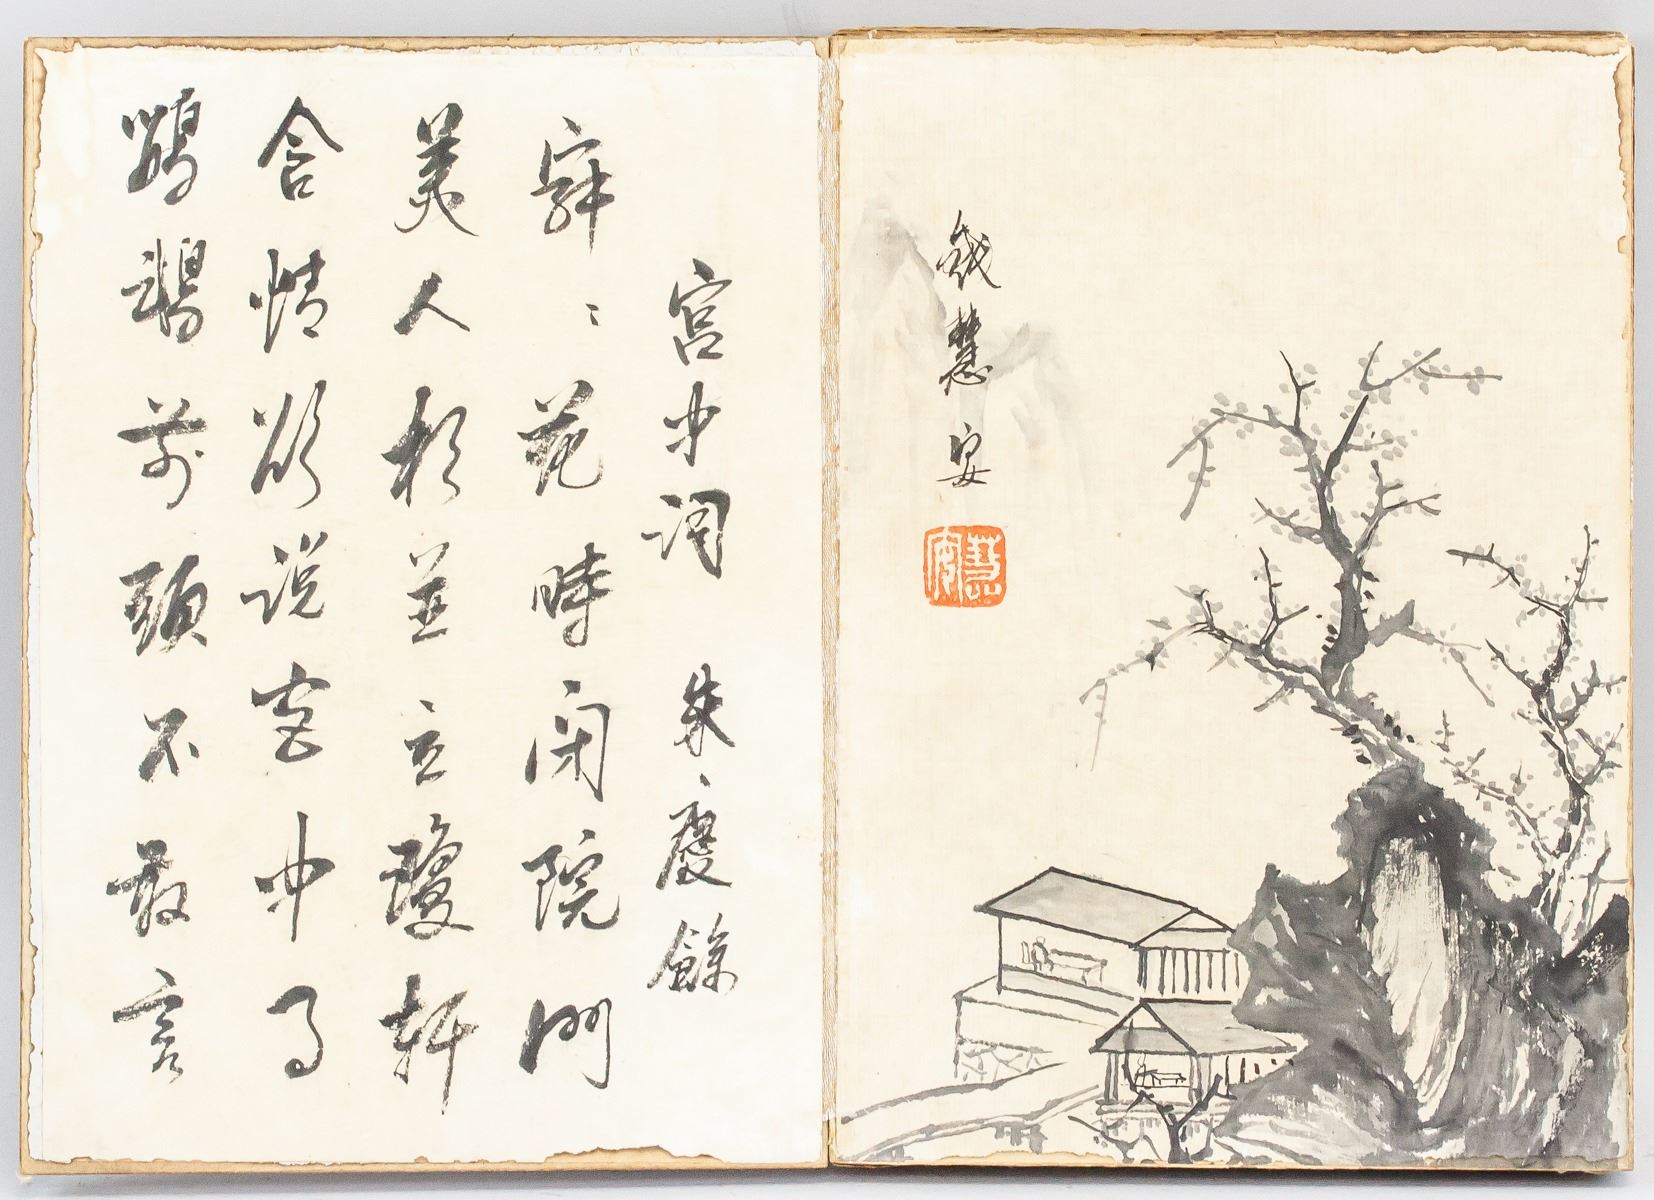 錢慧安
慧安
宮中詞 朱慶餘
寂〻花時閉院門
美人相並立瓊軒
含情欲說宮中事
鸚鵡前頭不敢言